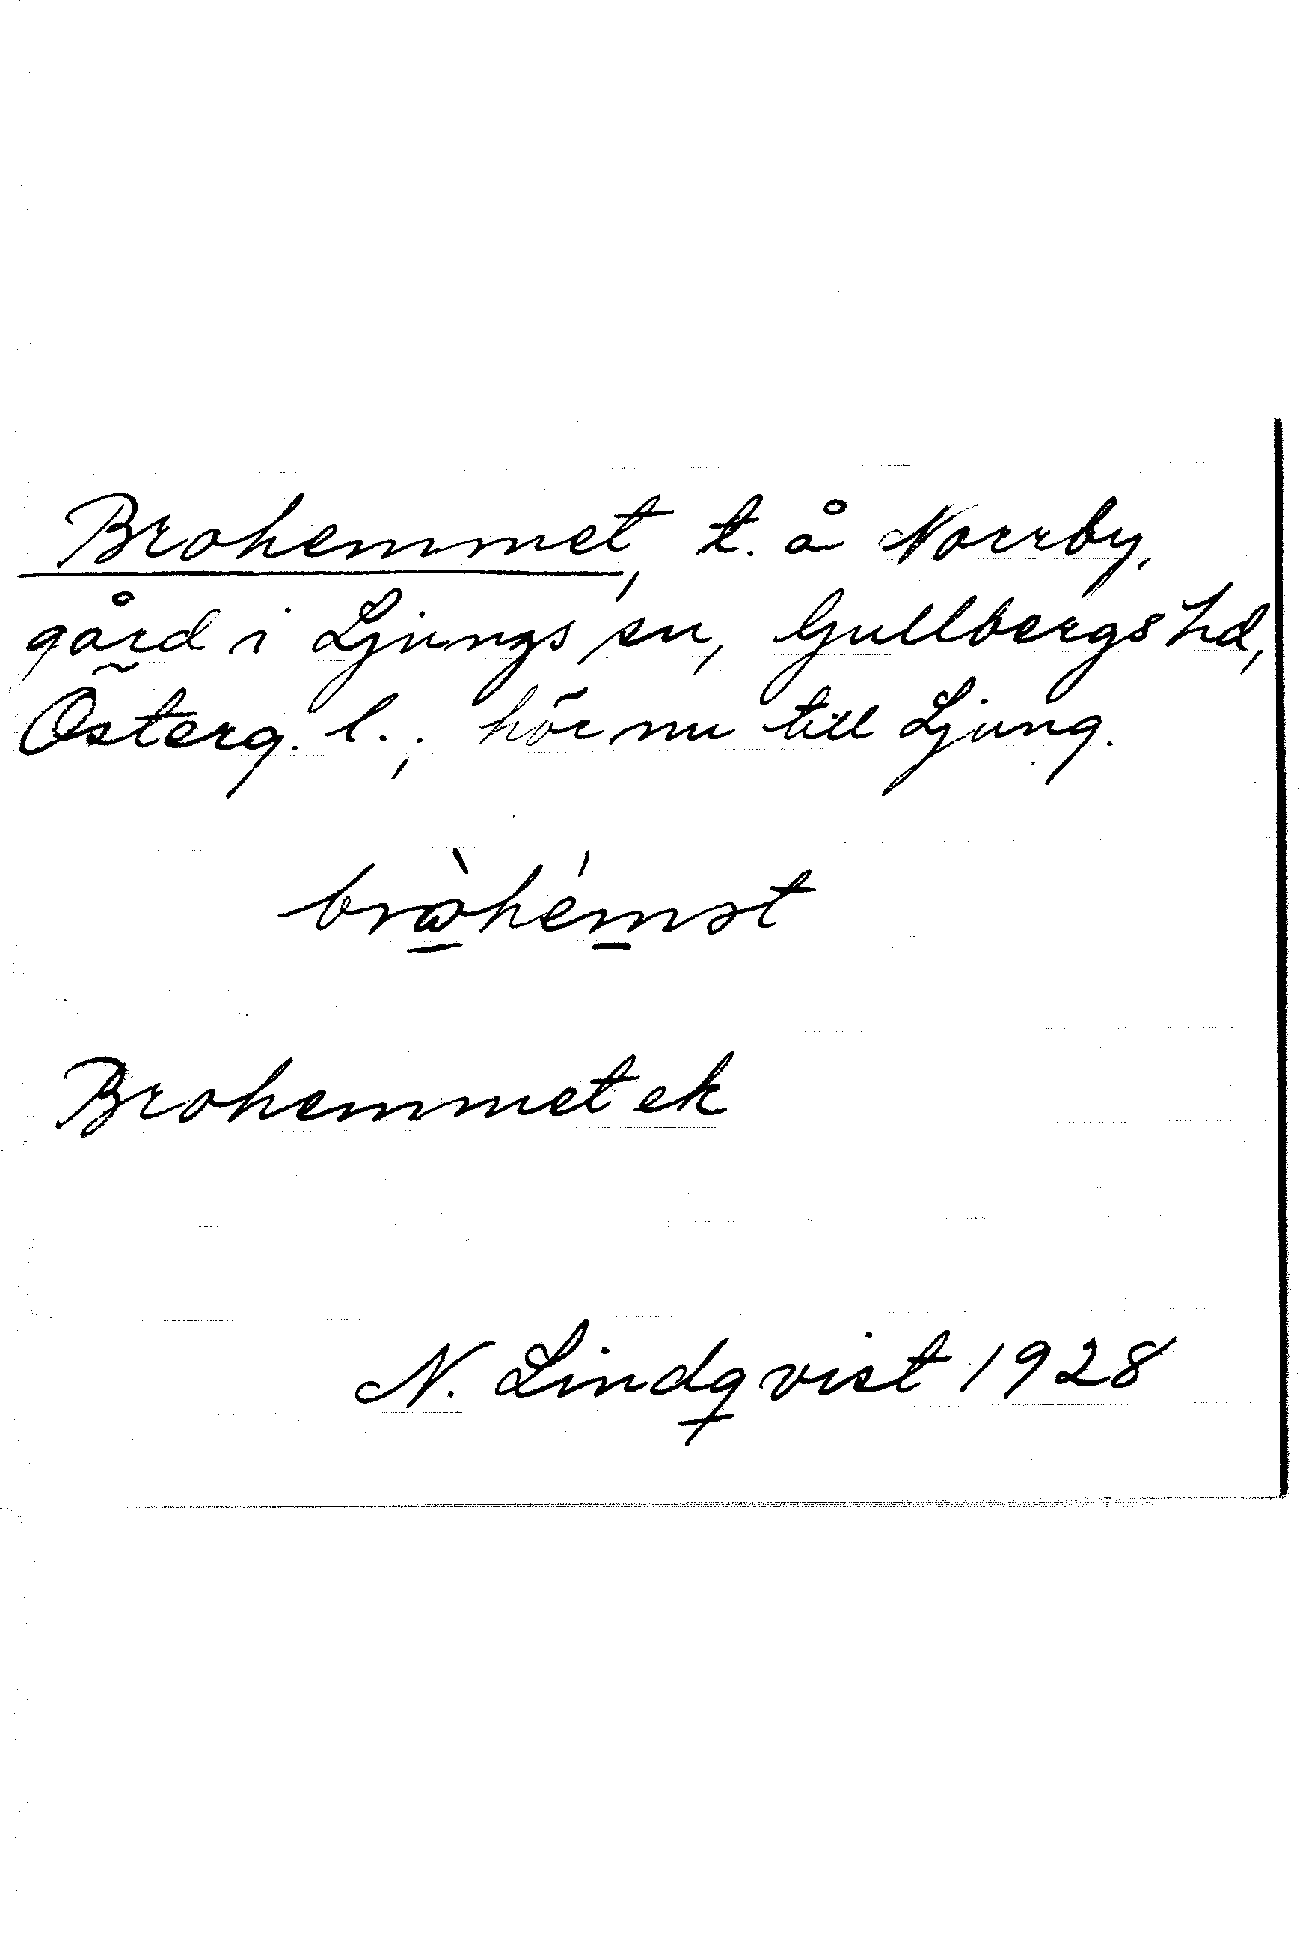 Brohemmet, t. å Norrby,
gård i Ljungs sn, Gullbergs hd,
Österg. l.; hör nu till Ljung.
brɷ̀hémət
Brohemmet ek
N. Lindqvist 1928